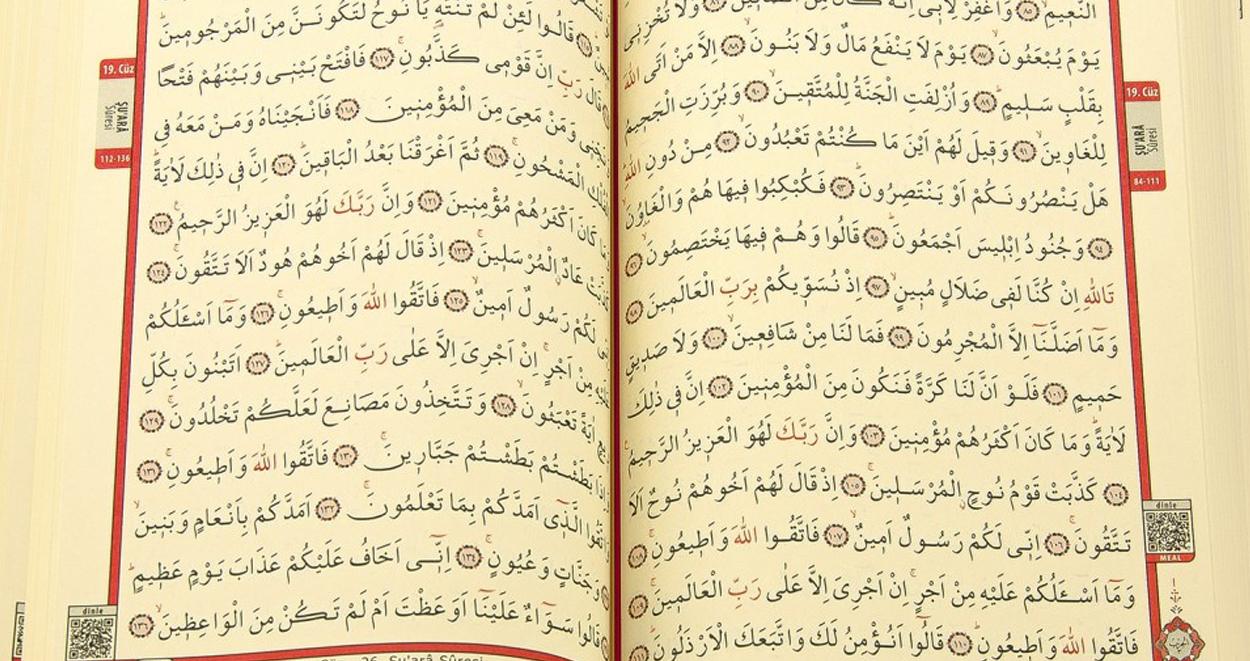 النَّعِيمِ ﴿٨٥﴾ وَاغْفِرْ لِاَبٖى اِنَّهُ كَانَ مِنَ الضَّٓالّٖينَ ﴿٨٦﴾ وَلَا تُخْزِنٖى
يَوْمَ يُبْعَثُونَ ﴿٨٧﴾ يَوْمَ لَا يَنْفَعُ مَالٌ وَلَا بَنُونَ ﴿٨٨﴾ اِلَّا مَنْ اَتَى اللّٰهَ
بِقَلْبٍ سَلٖيمٍ ﴿٨٩﴾ وَاُزْلِفَتِ الْجَنَّةُ لِلْمُتَّقٖينَ ﴿٩٠﴾ وَبُرِّزَتِ الْجَحٖيمُ
لِلْغَاوٖينَ ﴿٩١﴾ وَقٖيلَ لَهُمْ اَيْنَ مَا كُنْتُمْ تَعْبُدُونَ ﴿٩٢﴾ مِنْ دُونِ اللّٰهِ
هَلْ يَنْصُرُونَكُمْ اَوْ يَنْتَصِرُونَ ﴿٩٣﴾ فَكُبْكِبُوا فٖيهَا هُمْ وَالْغَاوُنَ
﴿٩٤﴾ وَجُنُودُ اِبْلٖيسَ اَجْمَعُونَ ﴿٩٥﴾ قَالُوا وَهُمْ فٖيهَا يَخْتَصِمُونَ ﴿٩٦﴾
تَاللّٰهِ اِنْ كُنَّا لَفٖى ضَلَالٍ مُبٖينٍ ﴿٩٧﴾ اِذْ نُسَوّٖيكُمْ بِرَبِّ الْعَالَمٖينَ ﴿٩٨﴾
وَمَٓا اَضَلَّنَٓا اِلَّا الْمُجْرِمُونَ ﴿٩٩﴾ فَمَا لَنَا مِنْ شَافِعٖينَ ﴿١٠٠﴾ وَلَا صَدٖيقٍ
حَمٖيمٍ ﴿١٠١﴾ فَلَوْ اَنَّ لَنَا كَرَّةً فَنَكُونَ مِنَ الْمُؤْمِنٖينَ ﴿١٠٢﴾ اِنَّ فٖى ذٰلِكَ
لَاٰيَةً وَمَا كَانَ اَكْثَرُهُمْ مُؤْمِنٖينَ ﴿١٠٣﴾ وَاِنَّ رَبَّكَ لَهُوَ الْعَزٖيزُ الرَّحٖيمُ
﴿١٠٤﴾ كَذَّبَتْ قَوْمُ نُوحٍ الْمُرْسَلٖينَ ﴿١٠٥﴾ اِذْ قَالَ لَهُمْ اَخُوهُمْ نُوحٌ اَلَا
تَتَّقُونَ ﴿١٠٦﴾ اِنّٖى لَكُمْ رَسُولٌ اَمٖينٌ ﴿١٠٧﴾ فَاتَّقُوا اللّٰهَ وَاَطٖيعُونِ ﴿١٠٨﴾
وَمَٓا اَسْـَٔلُكُمْ عَلَيْهِ مِنْ اَجْرٍ اِنْ اَجْرِىَ اِلَّا عَلٰى رَبِّ الْعَالَمٖينَ ﴿١٠٩﴾
فَاتَّقُوا اللّٰهَ وَاَطٖيعُونِ ﴿١١٠﴾ قَالُٓوا اَنُؤْمِنُ لَكَ وَاتَّبَعَكَ الْاَرْذَلُونَ ﴿١١١﴾
19. Cüz
ŞU'ARÂ
Sûresi
84-111
dinle
MEAL
﴿١١٥﴾ قَالُوا لَئِنْ لَمْ تَنْتَهِ يَا نُوحُ لَتَكُونَنَّ مِنَ الْمَرْجُومٖينَ
قَالَ رَبِّ اِنَّ قَوْمٖى كَذَّبُونِ ﴿١١٧﴾ فَافْتَحْ بَيْنٖى وَبَيْنَهُمْ فَتْحًا
وَمَنْ مَعِىَ مِنَ الْمُؤْمِنٖينَ ﴿١١٨﴾ فَاَنْجَيْنَاهُ وَمَنْ مَعَهُ فٖى
الْمَشْحُونِ ﴿١١٩﴾ ثُمَّ اَغْرَقْنَا بَعْدُ الْبَاقٖينَ ﴿١٢٠﴾ اِنَّ فٖى ذٰلِكَ لَاٰيَةً
كَانَ اَكْثَرُهُمْ مُؤْمِنٖينَ ﴿١٢١﴾ وَاِنَّ رَبَّكَ لَهُوَ الْعَزٖيزُ الرَّحٖيمُ ﴿١٢٢﴾
عَادٌ الْمُرْسَلٖينَ ﴿١٢٣﴾ اِذْ قَالَ لَهُمْ اَخُوهُمْ هُودٌ اَلَا تَتَّقُونَ ﴿١٢٤﴾
لَكُمْ رَسُولٌ اَمٖينٌ ﴿١٢٥﴾ فَاتَّقُوا اللّٰهَ وَاَطٖيعُونِ ﴿١٢٦﴾ وَمَٓا اَسْـَٔلُكُمْ
مِنْ اَجْرٍ اِنْ اَجْرِىَ اِلَّا عَلٰى رَبِّ الْعَالَمٖينَ ﴿١٢٧﴾ اَتَبْنُونَ بِكُلِّ
اٰيَةً تَعْبَثُونَ ﴿١٢٨﴾ وَتَتَّخِذُونَ مَصَانِعَ لَعَلَّكُمْ تَخْلُدُونَ ﴿١٢٩﴾
بَطَشْتُمْ بَطَشْتُمْ جَبَّارٖينَ ﴿١٣٠﴾ فَاتَّقُوا اللّٰهَ وَاَطٖيعُونِ ﴿١٣١﴾
الَّذٖٓى اَمَدَّكُمْ بِمَا تَعْلَمُونَ ﴿١٣٢﴾ اَمَدَّكُمْ بِاَنْعَامٍ وَبَنٖينَ
وَجَنَّاتٍ وَعُيُونٍ ﴿١٣٤﴾ اِنّٖٓى اَخَافُ عَلَيْكُمْ عَذَابَ يَوْمٍ عَظٖيمٍ
قَالُوا سَوَٓاءٌ عَلَيْنَٓا اَوَعَظْتَ اَمْ لَمْ تَكُنْ مِنَ الْوَاعِظٖينَ ﴿١٣٦﴾
19. Cüz
ŞU'ARÂ
Sûresi
112-136
dinle
26. Şu'arâ Sûresi